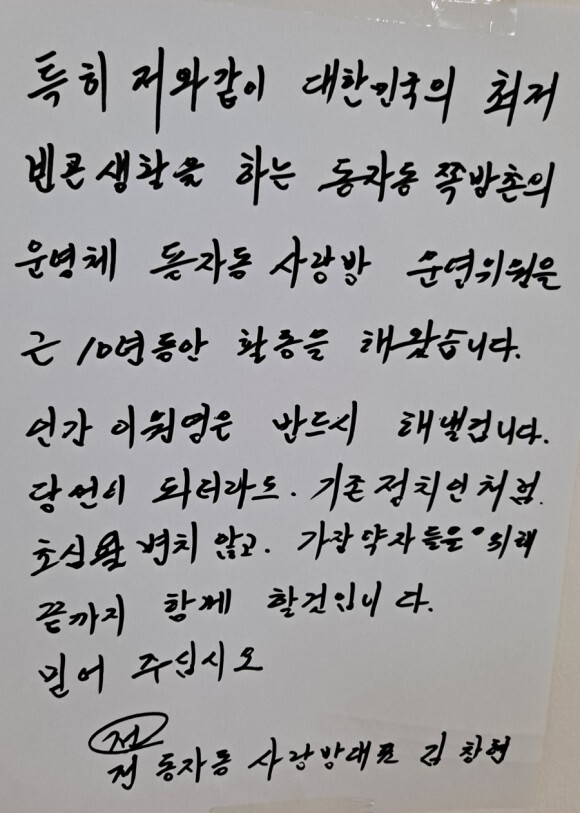 특히 저와같이 대한민국의 최저
빈곤생활을 하는 동자동 쪽방촌의
운영체 동자동 사랑방 운영위원을
근 10년동안 활동을 해왔습니다.
인간 이원영은 반드시 해낼겁니다.
당선이 되더라도. 기존정치인처럼.
초심을 변치 않고. 가장약자들을 위해
끝까지 함께 할것입니다.
믿어 주십시오
전
전 동자동 사랑방대표 김창현